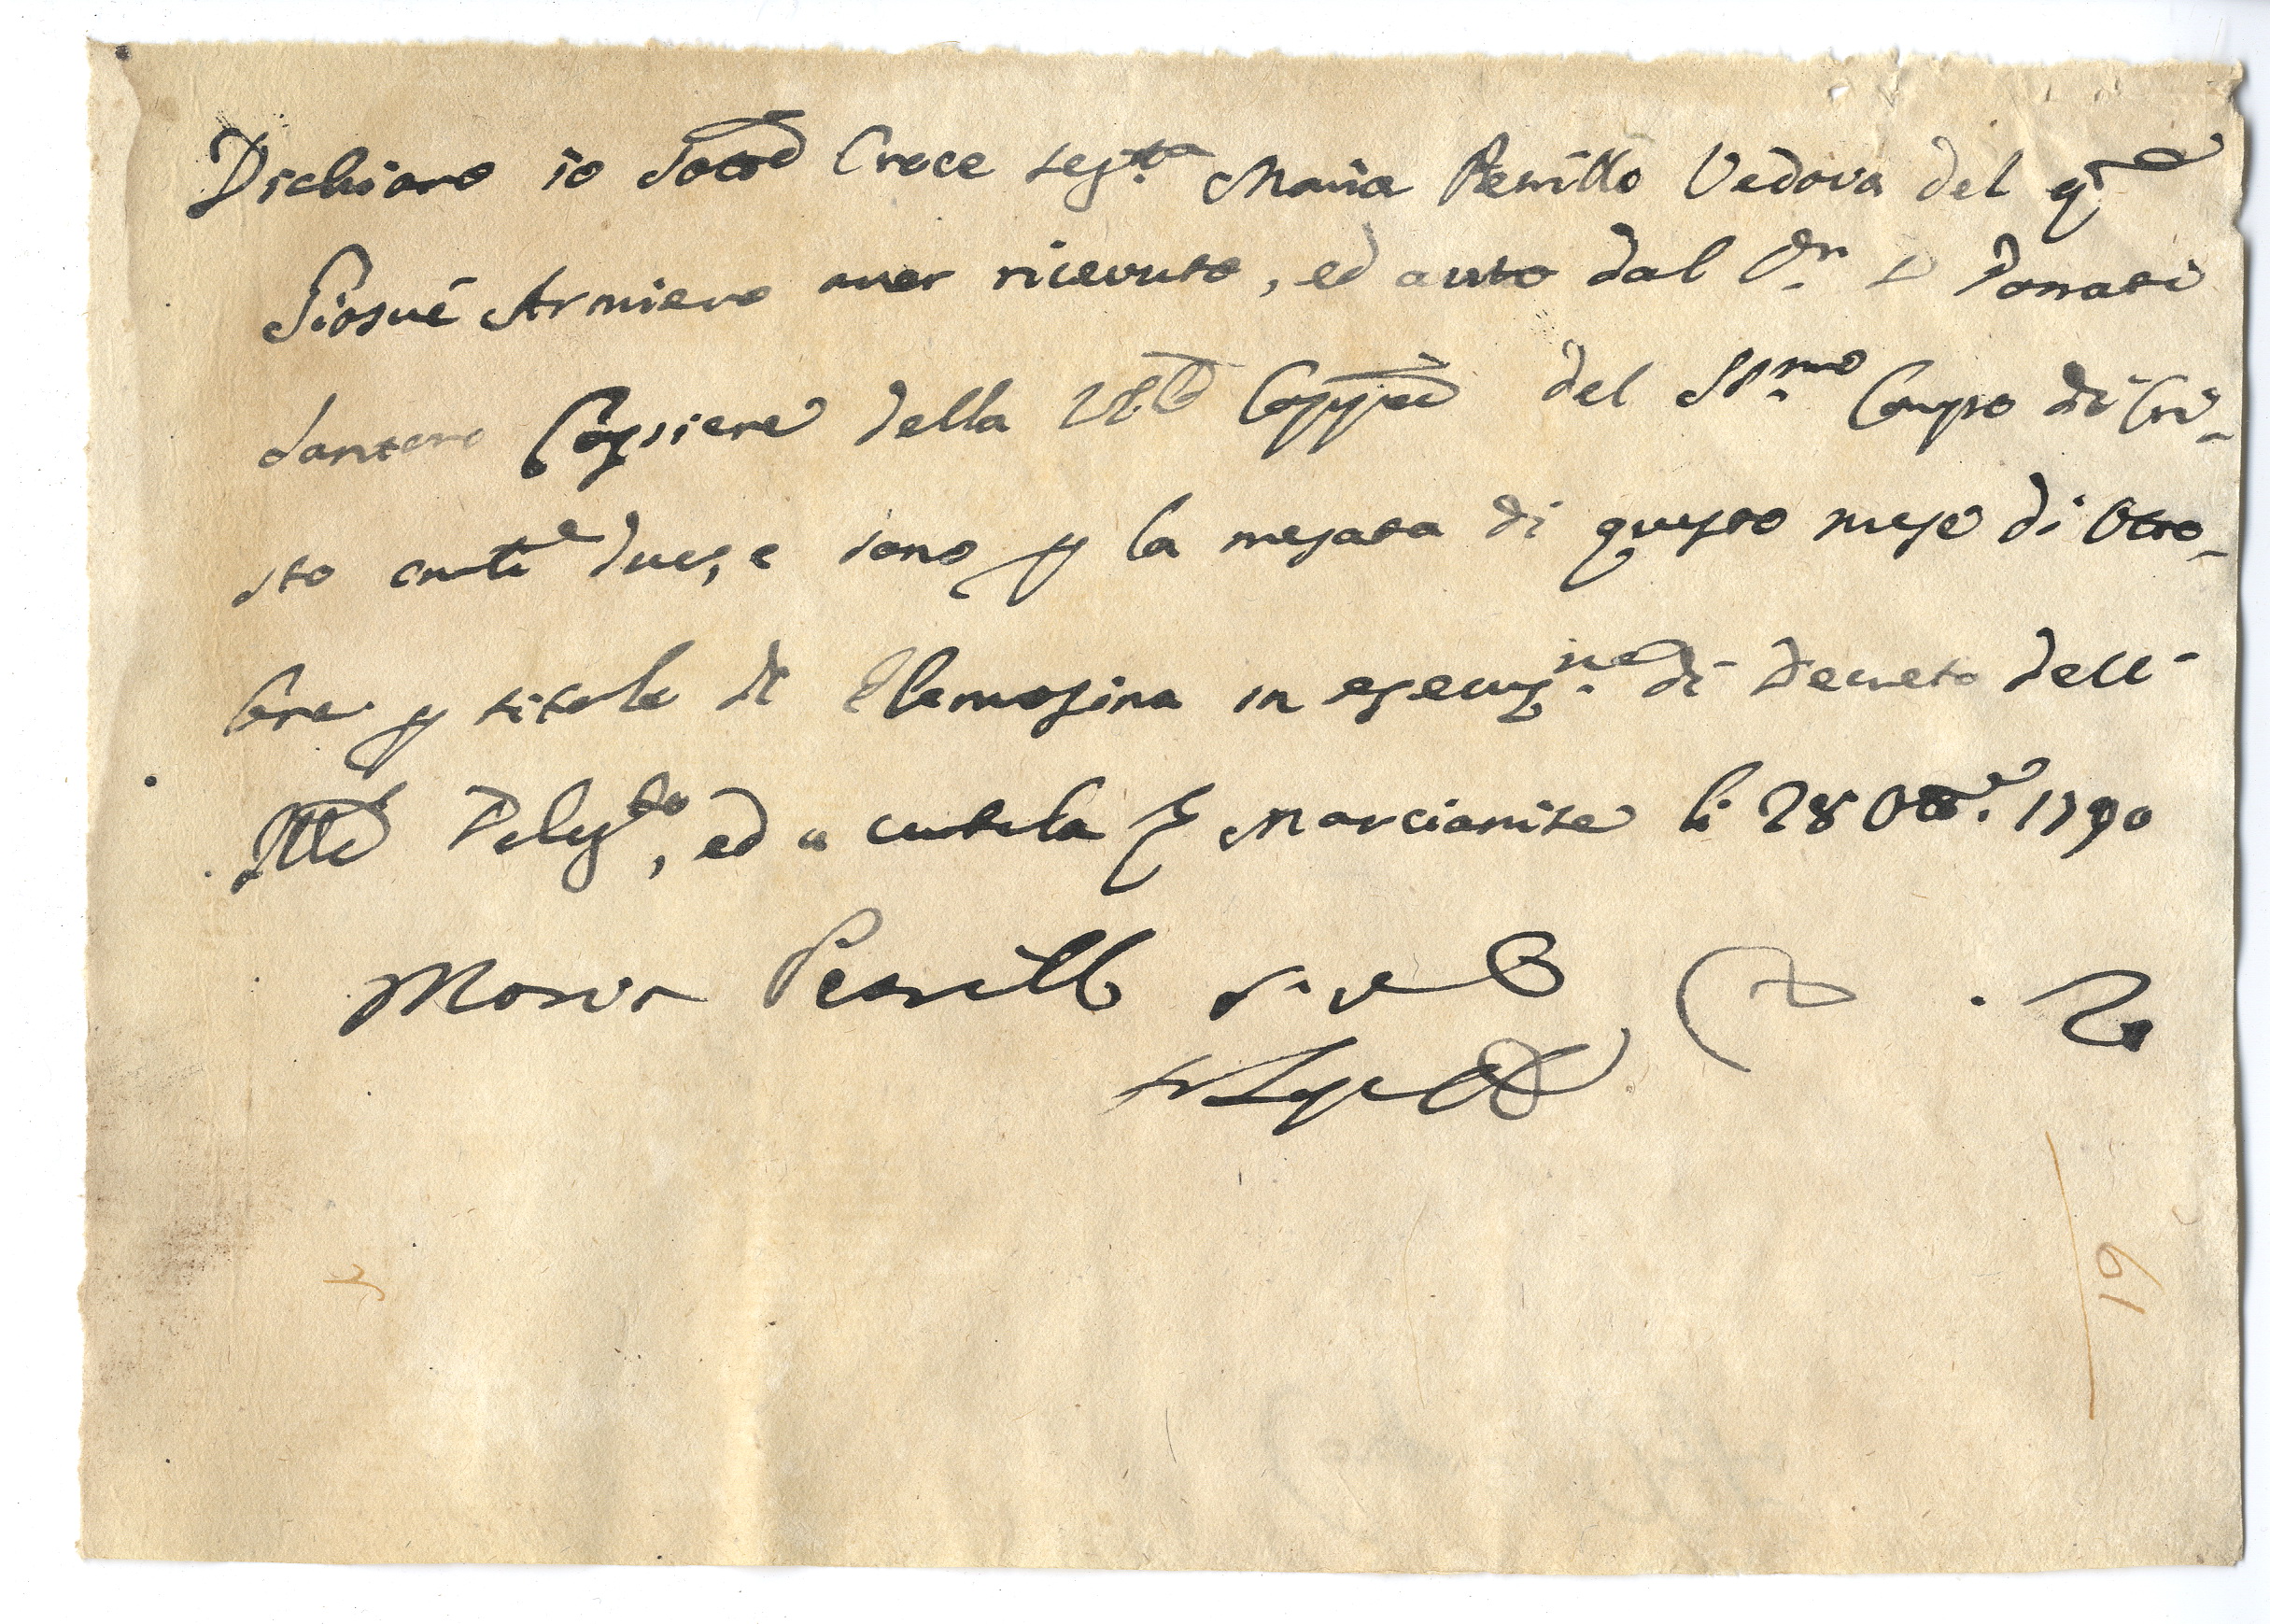 Dichiaro io Sotta Croce seg.ta Maria Perrillo Vedova del q.
Giosuè Armiero aver ricevuto, ed avuto dal Dr. D Donati
Cassiere della Cappa del SS.mo Corpo di Cri-
sto duc, e sono p la mesata di questo mese di Otto-
bre p titolo di Elemosina in esecuz.ne di Decreto dell'
Ille Deleg.to, ed a cautela Marcianise li 28 Ott.e 1790
Maria Perrillo
19